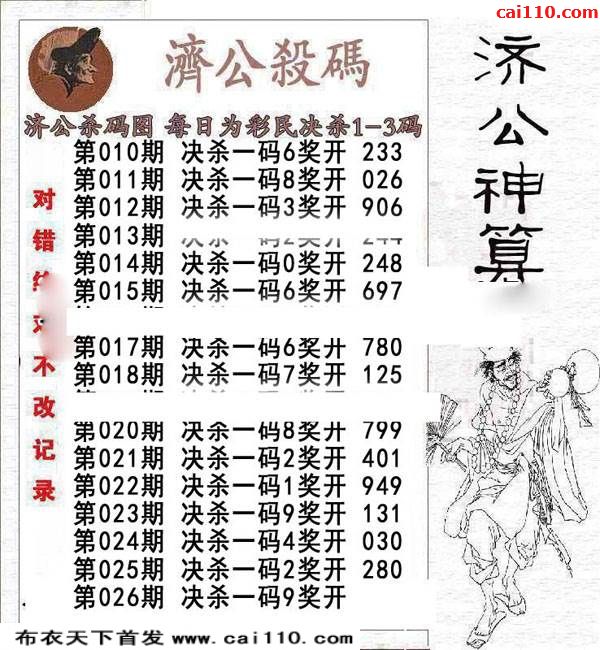 cai110.com
濟公殺碼
济公杀码图 每日为彩民决杀1-3码
第010期 决杀一码6奖开 233
第011期 决杀一码8奖开 026
第012期 决杀一码3奖开 906
第013期 决杀一码2奖开 244
第014期 决杀一码0奖开 248
第015期 决杀一码6奖开 697
第017期 决杀一码6奖开 780
第018期 决杀一码7奖开 125
第020期 决杀一码8奖开 799
第021期 决杀一码2奖开 401
第022期 决杀一码1奖开 949
第023期 决杀一码9奖开 131
第024期 决杀一码4奖开 030
第025期 决杀一码2奖开 280
第026期 决杀一码9奖开
对错
不改记录
济公神算
布衣天下首发 www.cai110.com